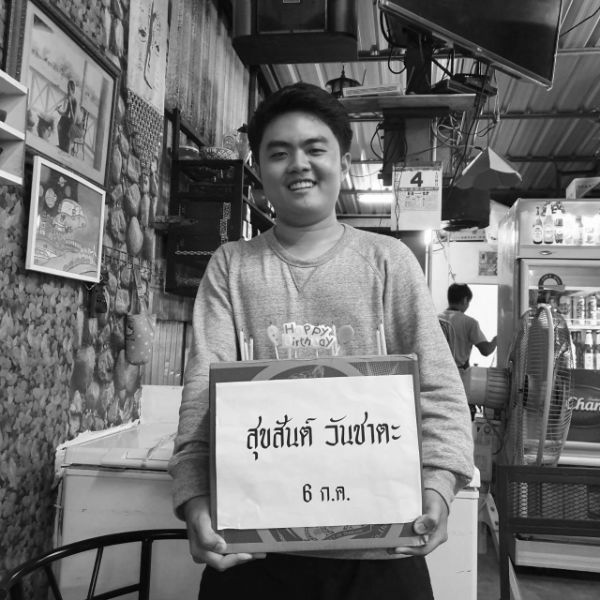 4
Happy
Birthday
สุขสันต์ วันชาตะ
6 ก.ค.
Chan